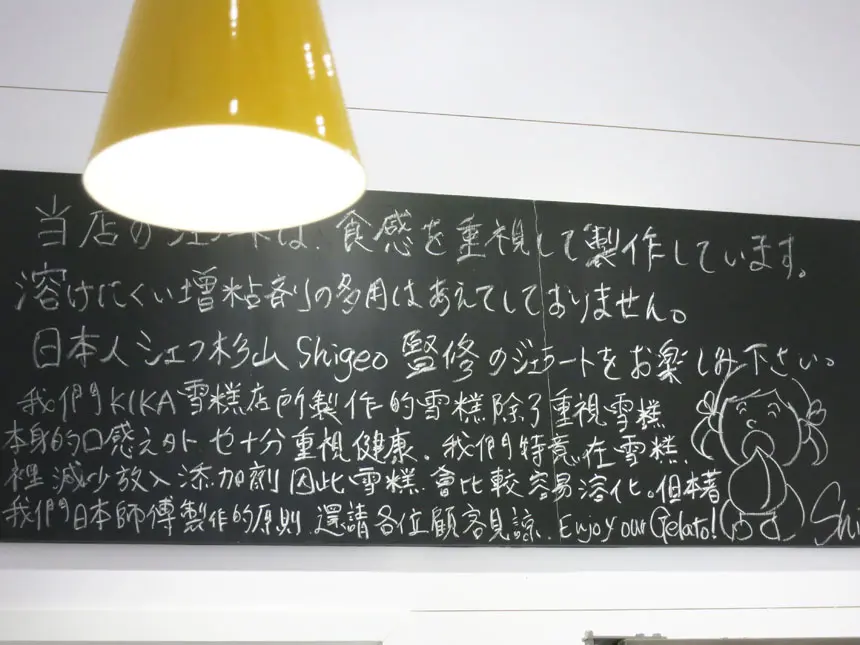 当店のジェラートは、食感を重視して製作しています。
溶けにくい増粘剤の多用はあえてしておりません。
日本人シェフ杉山Shigeo 監修のジェラートをお楽しみ下さい。
我們KIKA雪糕店所製作的雪糕除了重視雪糕
本身的口感之外 也十分重視健康。我們特意在雪糕
裡減少放入添加劑因此雪糕會比較容易溶化。但本著
我們日本師傅製作的原則還請各位顧客見諒. Enjoy our Gelato!
Shi